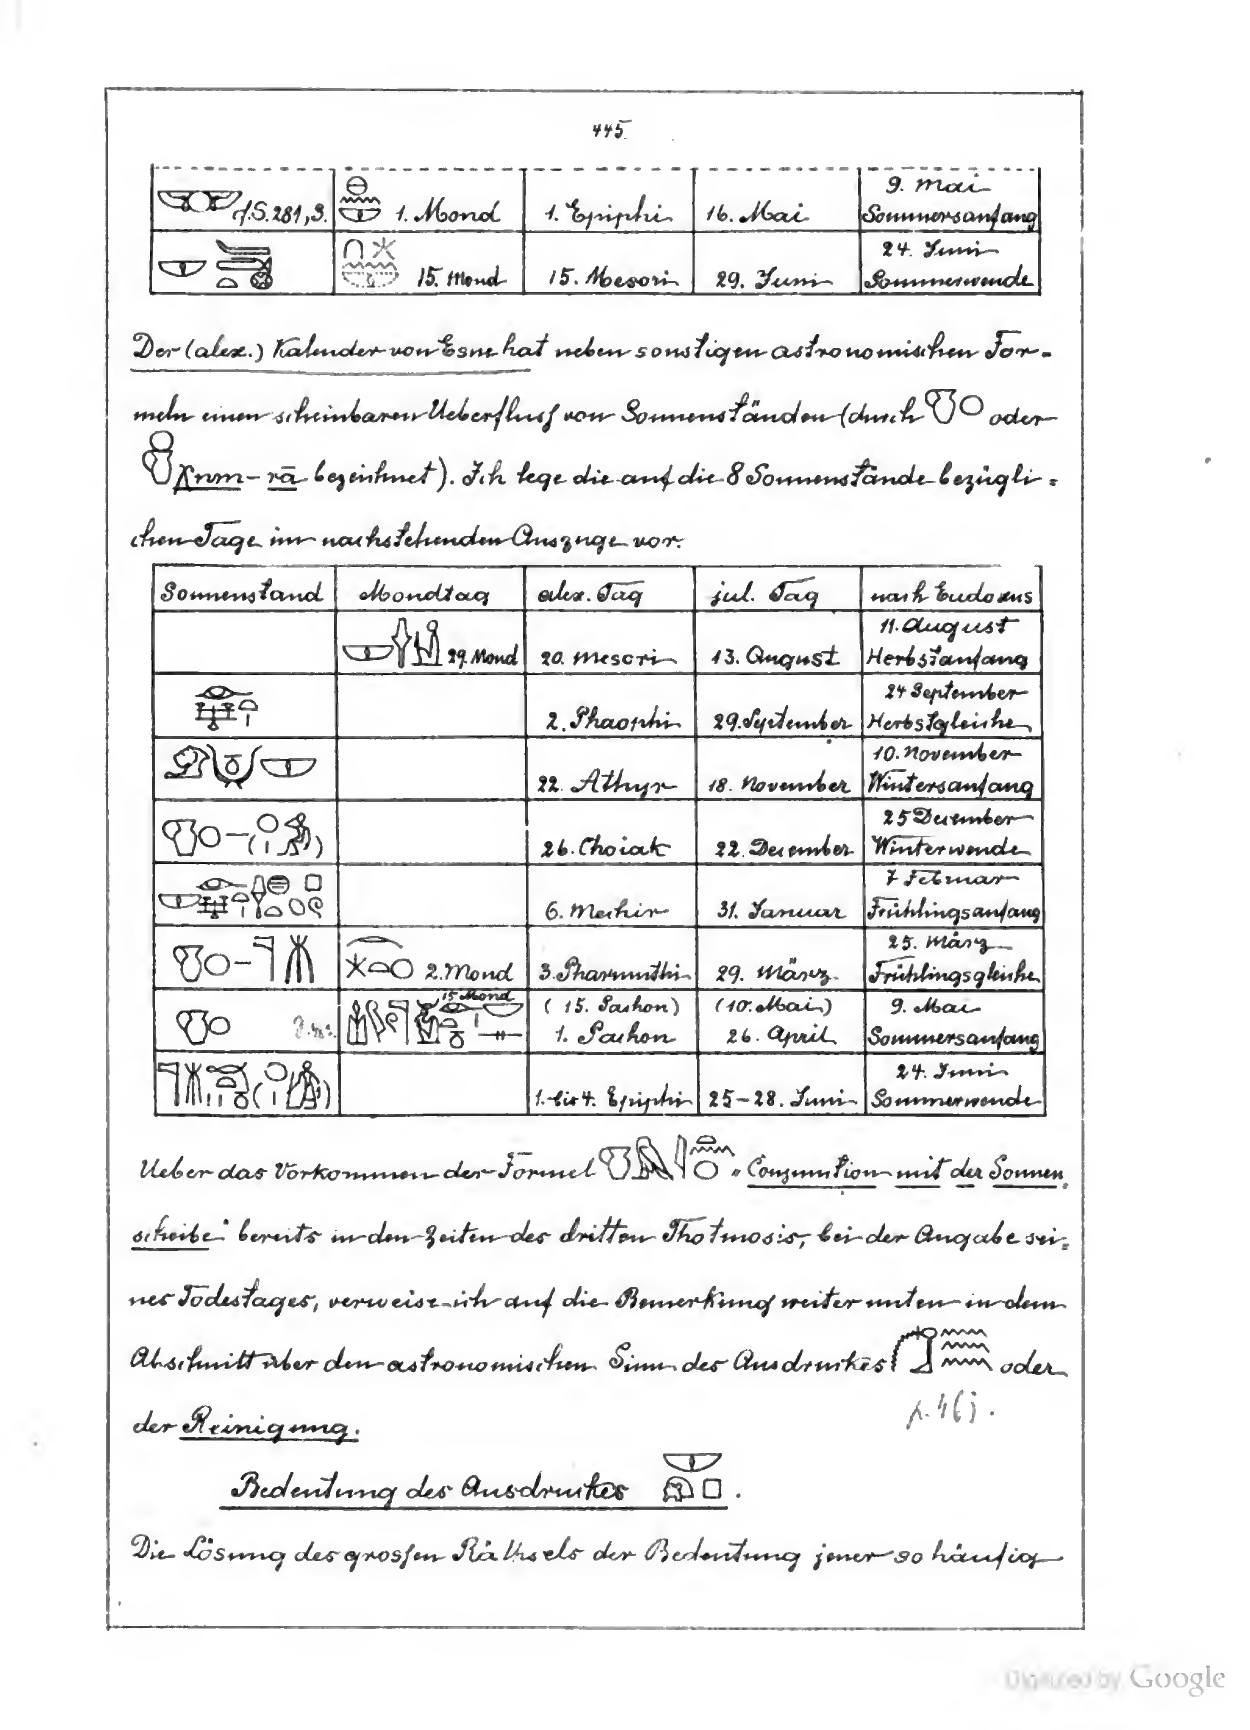 445.
cf. S. 281, 3. 1. Mond 1. Epiphi 16. Mai 9. Mai Sommersanfang
15. Mond 15. Mesori 29. Juni 24. Juni Sommerwende
Der (alex.) Kalender von Esne hat neben sonstigen astronomischen For-
meln einen scheinbaren Ueberfluss von Sonnenständen (durch oder
Xnm-rā bezeichnet). Ich lege die auf die 8 Sonnenstände bezügli-
chen Tage im nachstehenden Auszuge vor.
Sonnenstand Mondtag alex. Tag jul. Tag nach Eudoxus
29. Mond 20. Mesori 13. August 11. August Herbstanfang
2. Phaophi 29. September 24 September Herbstgleiche
22. Athyr 18. November 10. November Wintersanfang
26. Choiak 22. December 25 December Winterwende
6. Mechir 31. Januar 7 Februar Frühlingsanfang
2. Mond 3. Pharmuthi 29. März 25. März Frühlingsgleiche
15 Mond (15. Pachon) 1. Pachon (10. Mai) 26. April 9. Mai Sommersanfang
1. bis 4. Epiphi 25-28. Juni 24. Juni Sommerwende
Ueber das Vorkommen der Formel „Conjunction mit der Sonnen
scheibe" bereits in den Zeiten des dritten Thotmosis, bei der Angabe sei-
nes Todestages, verweise ich auf die Bemerkung weiter unten in dem
Abschnitt über den astronomischen Sinn des Ausdruckes oder
der Reinigung.
Bedeutung des Ausdruckes .
Die Lösung des grossen Räthsels der Bedeutung jener so häufig
Digitized by Google